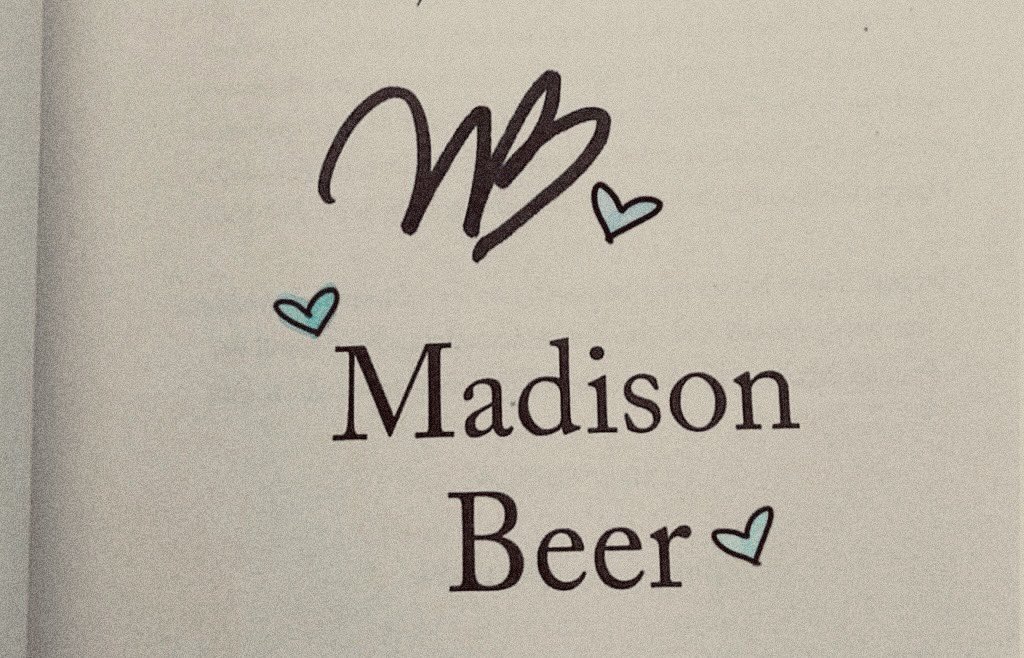 MB
Madison
Beer